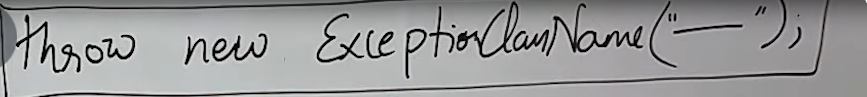 throw new ExceptionClassName("—");